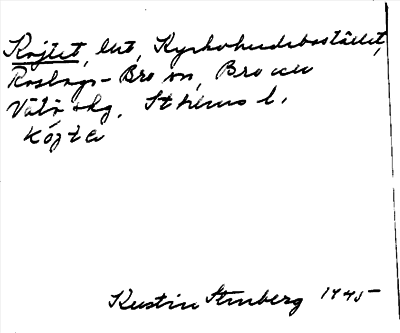 Kojtet, bit, Kyrkoherdebostället,
Roslags-Bro sn, Bro och
Vätö skg. Sthlms l.
Kójta
Kustin Strnberg 1945